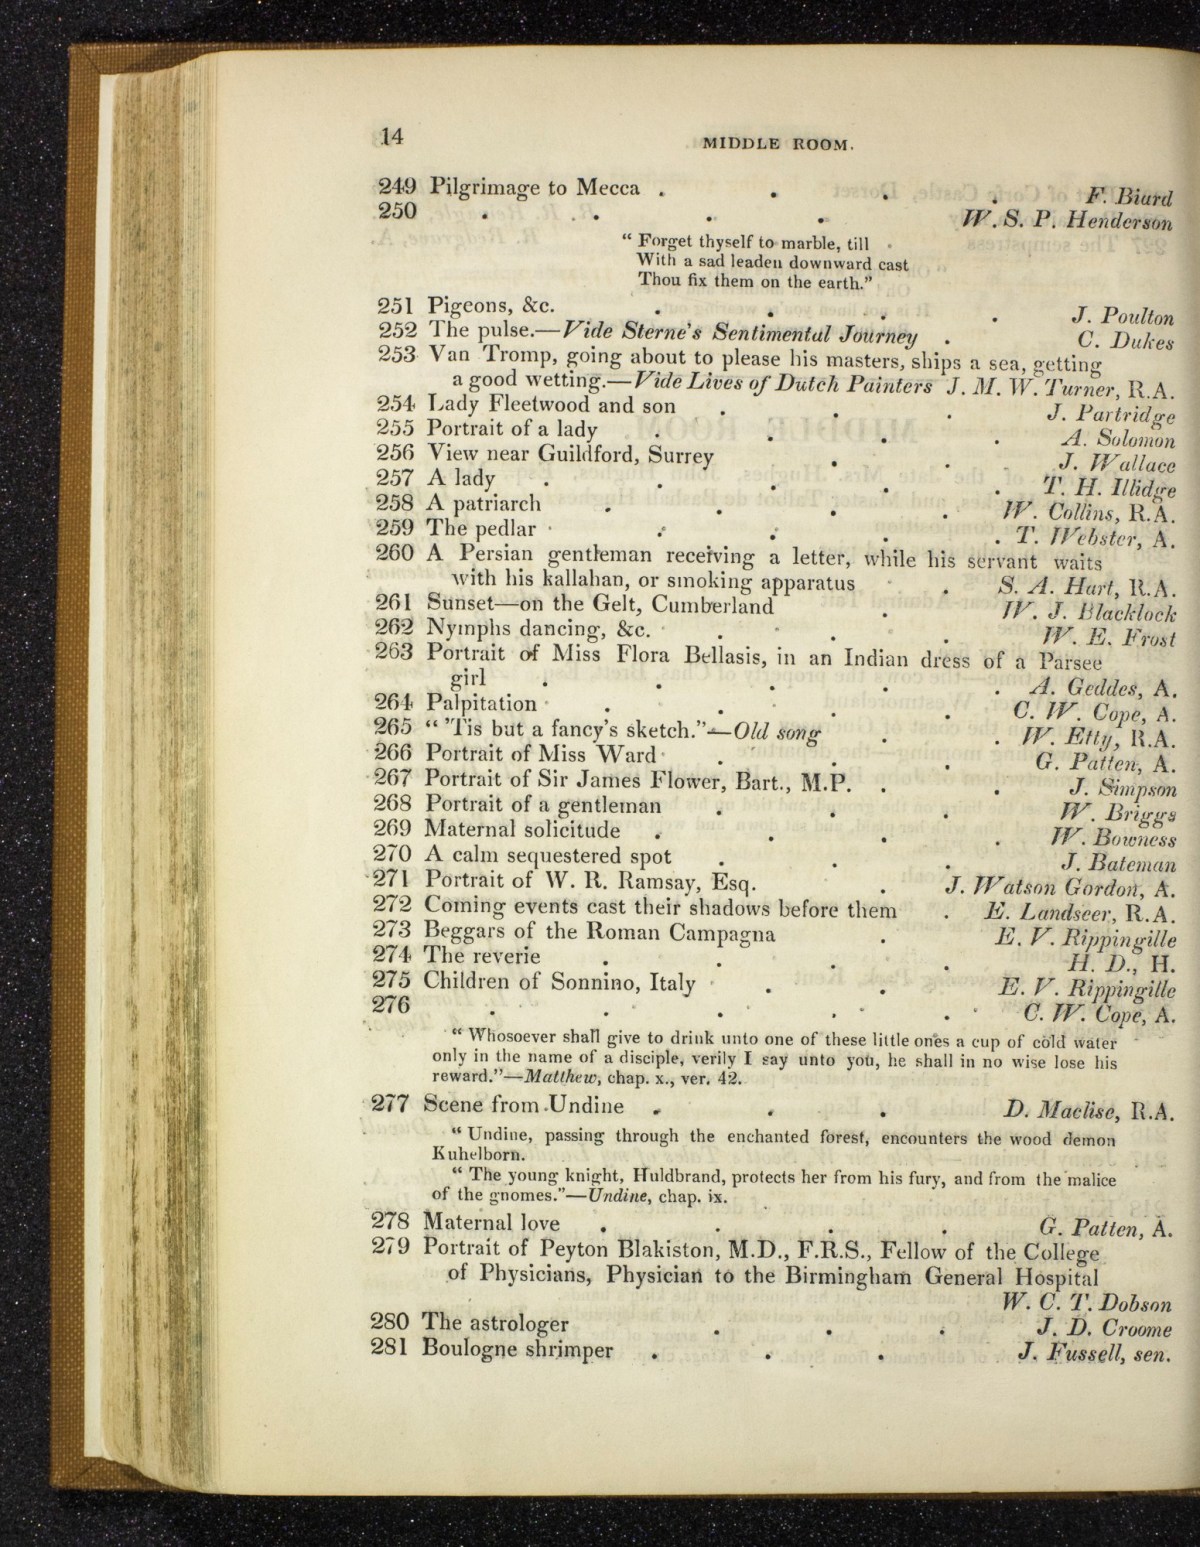 14
MIDDLE ROOM.
249 Pilgrimage to Mecca . . . . F. Biard
250 . . . . W. S. P. Henderson
“ Forget thyself to marble, till
With a sad leaden downward cast
Thou fix them on the earth.”
251 Pigeons, &c. . . . . J. Poulton
252 The pulse.—Vide Sterne's Sentimental Journey . C. Dukes
253 Van Tromp, going about to please his masters, ships a sea, getting
a good wetting.—Vide Lives of Dutch Painters J. M. W. Turner, R.A.
254 Lady Fleetwood and son . . . J. Partridge
255 Portrait of a lady . . . . A. Solomon
256 View near Guildford, Surrey . . J. Wallace
257 A lady . . . . . T. H. Illidge
258 A patriarch . . . . W. Collins, R.A.
259 The pedlar . . . . T. Webster, A.
260 A Persian gentleman receiving a letter, while his servant waits
with his kallahan, or smoking apparatus . S. A. Hart, R.A.
261 Sunset—on the Gelt, Cumberland . W. J. Blacklock
262 Nymphs dancing, &c. . . . W. E. Frost
263 Portrait of Miss Flora Bellasis, in an Indian dress of a Parsee
girl . . . . . A. Geddes, A.
264 Palpitation . . . . C. W. Cope, A.
265 “ 'Tis but a fancy's sketch.”—Old song . . W. Etty, R.A.
266 Portrait of Miss Ward . . . G. Patten, A.
267 Portrait of Sir James Flower, Bart., M.P. . . J. Simpson
268 Portrait of a gentleman . . . W. Briggs
269 Maternal solicitude . . . . W. Bowness
270 A calm sequestered spot . . . J. Bateman
271 Portrait of W. R. Ramsay, Esq. . J. Watson Gordon, A.
272 Coming events cast their shadows before them . E. Landseer, R.A.
273 Beggars of the Roman Campagna . E. V. Rippingille
274 The reverie . . . . H. D., H.
275 Children of Sonnino, Italy . . E. V. Rippingille
276 . . . . . C. W. Cope, A.
“ Whosoever shall give to drink unto one of these little ones a cup of cold water
only in the name of a disciple, verily I say unto you, he shall in no wise lose his
reward.”—Matthew, chap. x., ver. 42.
277 Scene from Undine . . . D. Maclise, R.A.
“ Undine, passing through the enchanted forest, encounters the wood demon
Kuhelborn.
“ The young knight, Huldbrand, protects her from his fury, and from the malice
of the gnomes.”—Undine, chap. ix.
278 Maternal love . . . . G. Patten, A.
279 Portrait of Peyton Blakiston, M.D., F.R.S., Fellow of the College
of Physicians, Physician to the Birmingham General Hospital
W. C. T. Dobson
280 The astrologer . . . J. D. Croome
281 Boulogne shrimper . . . J. Fussell, sen.